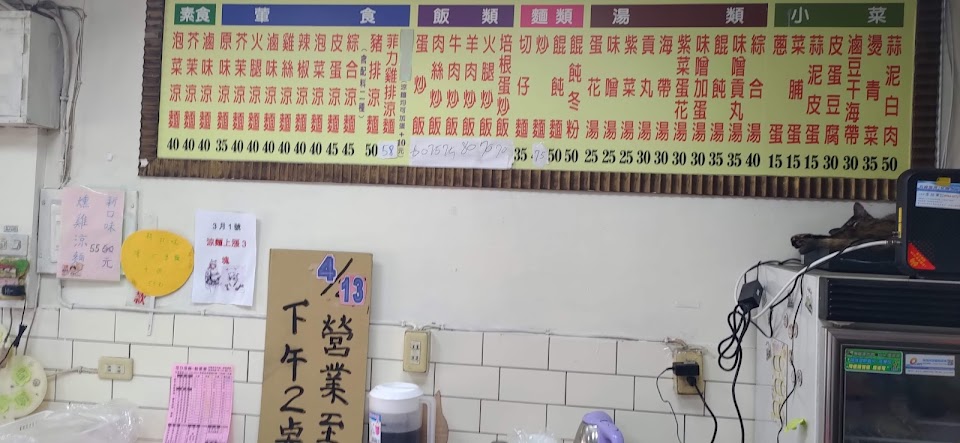 素食
泡菜涼麵 40
芥茉涼麵 40
滷味涼麵 40
葷食
原味涼麵 35
芥茉涼麵 40
火腿涼麵 40
滷味涼麵 40
雞絲涼麵 40
辣椒涼麵 40
泡菜涼麵 40
皮蛋涼麵 45
綜合涼麵(含配料二種) 45
豬排涼麵 50
菲力雞排涼麵 58
涼麵均可加蛋+10元
飯類
蛋炒飯 60
肉絲炒飯 75
牛肉炒飯 75
羊肉炒飯 80
火腿炒飯 70
培根蛋炒飯 70
麵類
切仔麵 35
炒麵 75
餛飩麵 50
餛飩冬粉 50
湯類
蛋花湯 25
味噌湯 25
紫菜湯 25
貢丸湯 30
海帶湯 30
紫菜蛋花湯 30
味噌加蛋湯 30
餛飩湯 35
味噌貢丸湯 35
綜合湯 40
小菜
蔥蛋 15
菜脯蛋 15
蒜泥皮蛋 15
皮蛋豆腐 30
滷豆干海帶 30
燙青菜 35
蒜泥白肉 50
新口味
燻雞涼麵
元
3月1號
涼麵上漲3
塊
款
4/13
營業至
下午2点